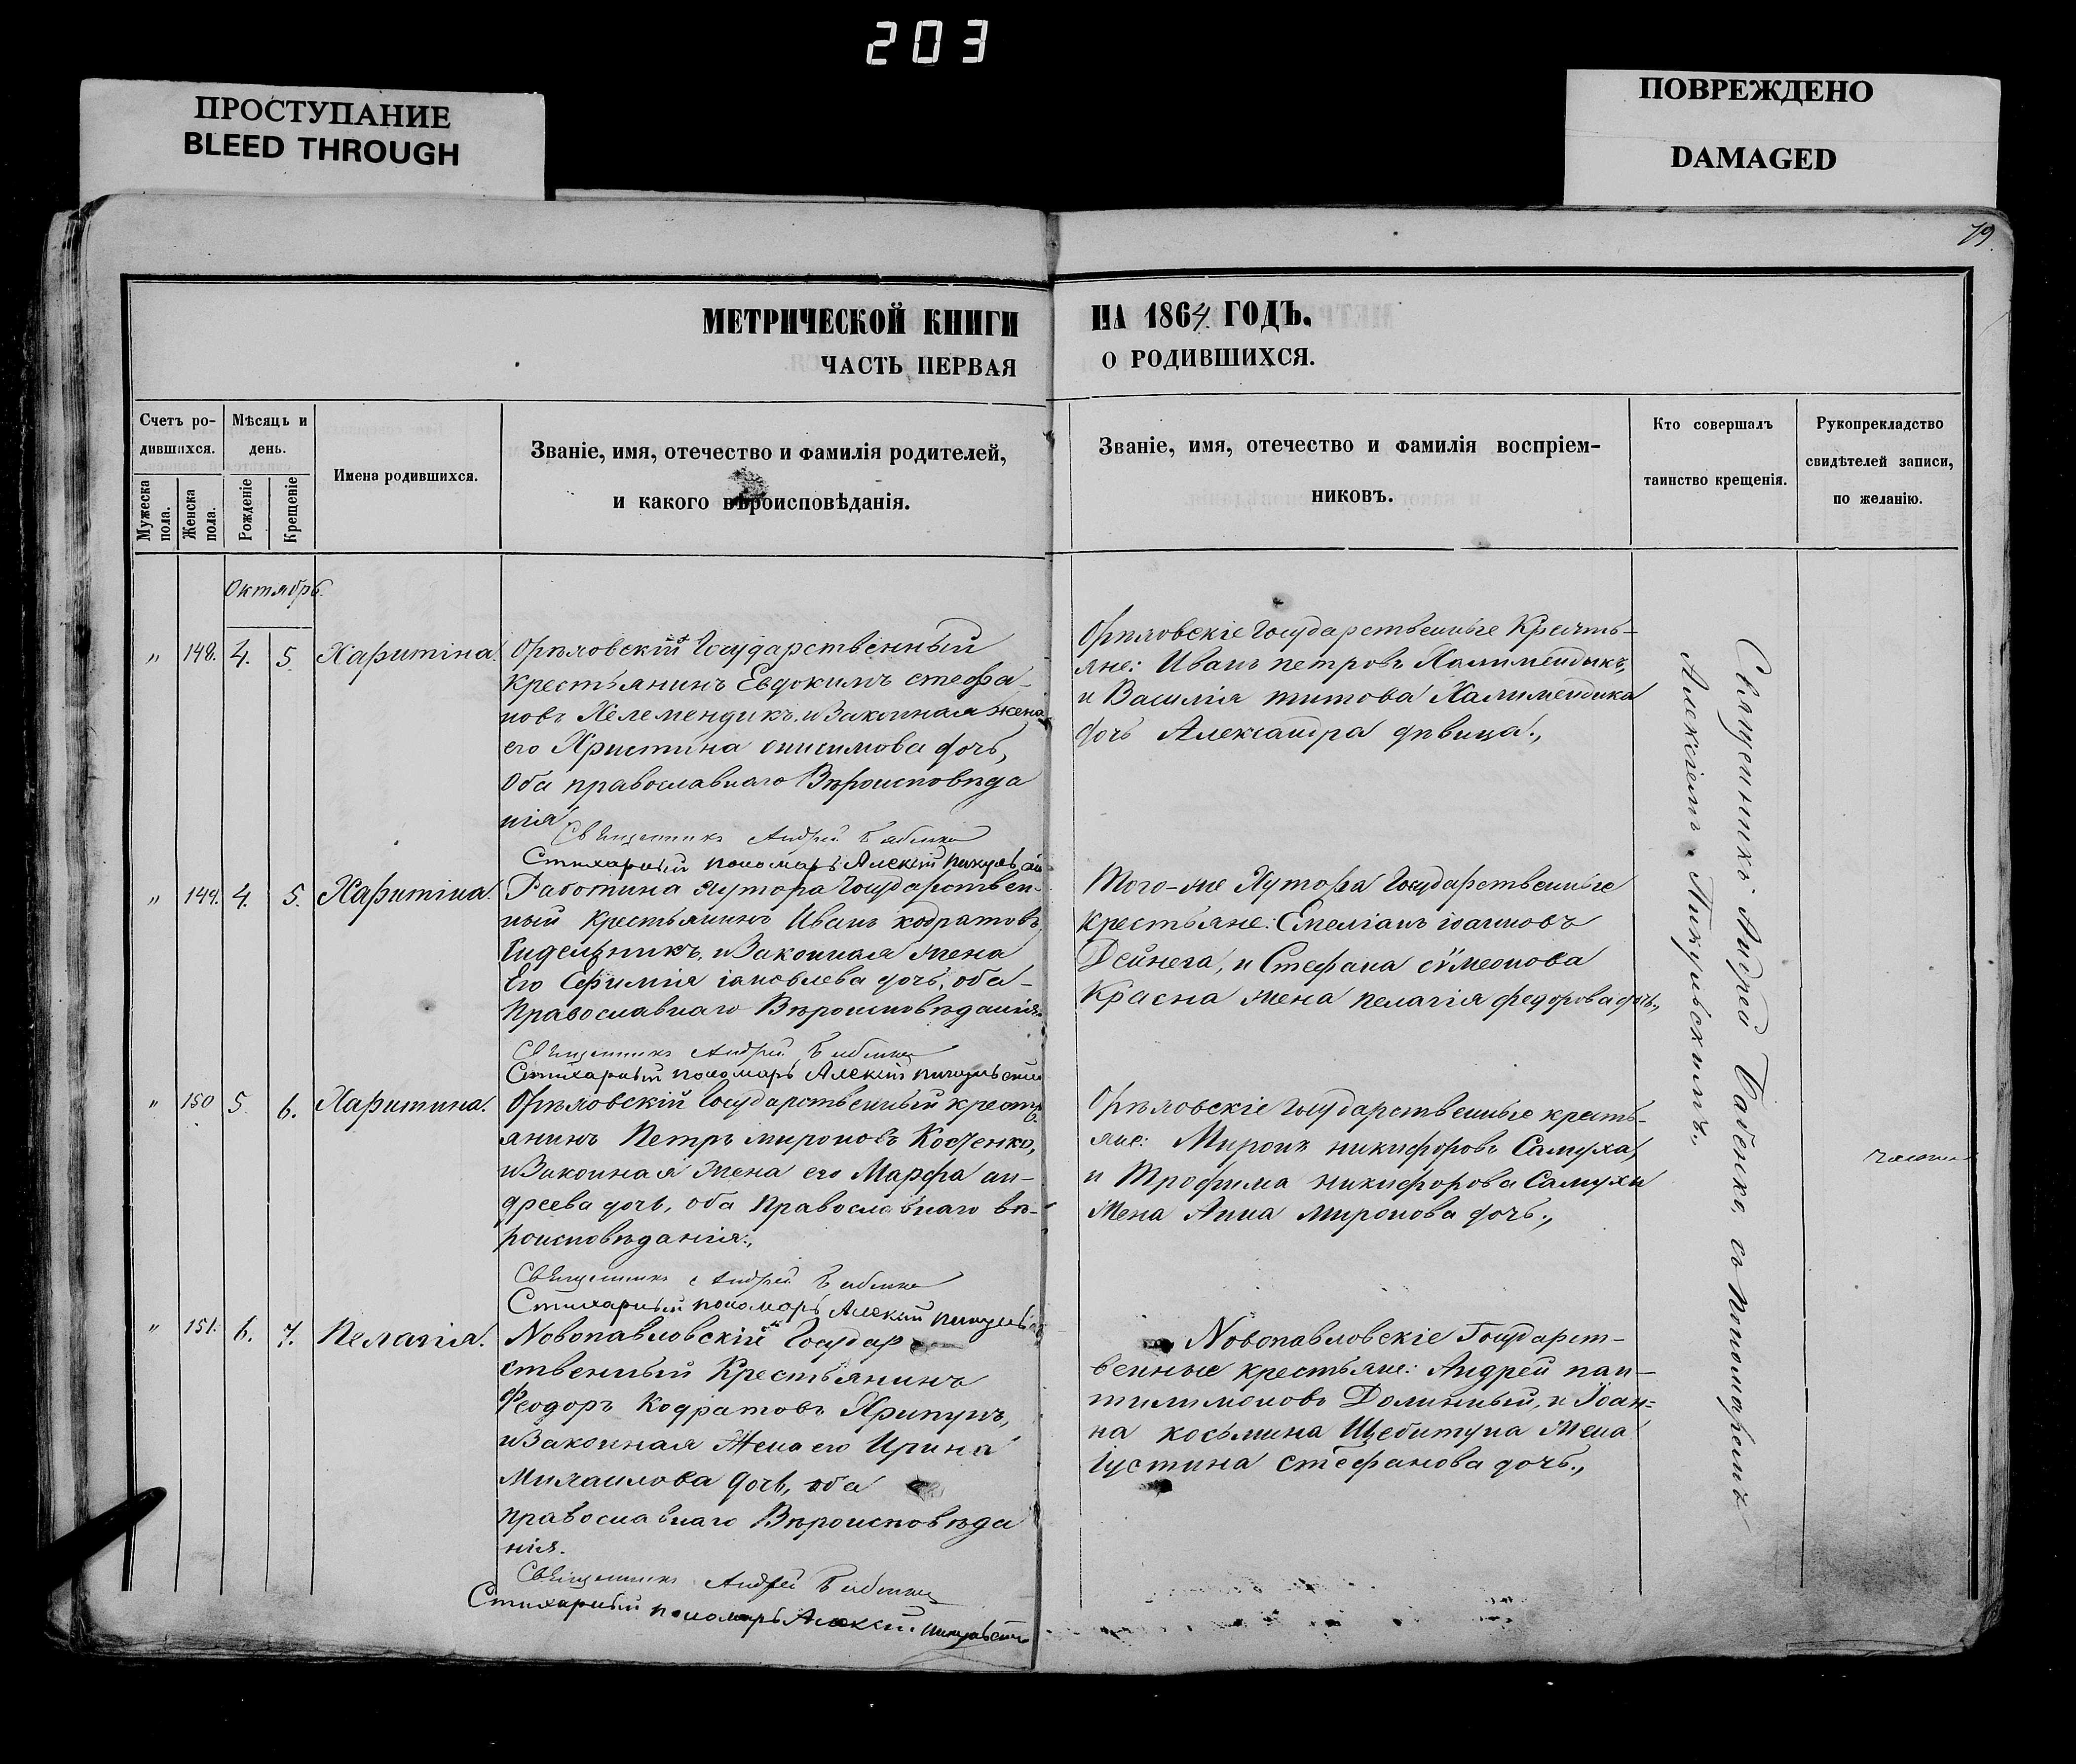 203
ПРОСТУПАНИЕ
BLEED THROUGH
ПОВРЕЖДЕНО
DAMAGED
79.
МЕТРИЧЕСКОЙ КНИГИ
ЧАСТЬ ПЕРВАЯ
НА 1864 ГОДЪ.
О РОДИВШИХСЯ.
Счетъ ро-
дившихся.
Мужеска
пола.
Женска
пола.
Мѣсяцъ и
день.
Рожденіе
Крещеніе
Имена родившихся.
Званіе, имя, отечество и фамилія родителей,
и какого вѣроисповѣданія.
Званіе, имя, отечество и фамилія воспріем-
никовъ.
Кто совершалъ
таинство крещенія.
Рукоприкладство
свидѣтелей записи,
по желанію.
Октябрь.
" 148. 4. 5. Харитіна.
Орѣловскій Государственный
крестьянинъ Евдокимъ стефа-
новъ Келемендикъ, и Законная жена
его Христина онисимова дочь,
Оба православнаго Вѣроисповѣда
нія
Священникъ Андрей Бабенко
Стихарный пономарь Алексій
Орѣловскіе Государственные Кресть-
яне: Иванъ петровъ
и Василія титова
дочь Александра дѣвица.,
" 149. 4. 5. Харитіна.
Работина Хутора Государствен-
ный крестьянинъ Иванъ кодратовъ
и Законная жена
Его Ефимія іаковлева дочь, оба-
Православнаго Вѣроисповѣданія.
Священникъ Андрей Бабенко
Стихарный пономарь Алексій Пикульскій
Того-же Хутора Государственные
крестьяне: Емеліанъ іоанновъ
Дейнега, и Стефана сѵмеонова
Красна жена пелагія федорова дочь.,
" 150 5. 6. Харитина.
Орѣловскій Государственный крест
янинъ Петръ мироновъ Костенко,
и Законная жена его Марфа ан-
дреева дочь, оба Православнаго вѣ-
роисповѣданія.,
Священникъ Андрей Бабенко
Стихарный пономарь Алексій
Орѣловскіе Государственные кресть-
яне: Миронъ никифоровъ Самуха,
и Трофима никифорова Самухи
жена Анна миронова дочь.,
" 151. 6. 7. Пелагія.
Новопавловскій Государ
ственный Крестьянинъ
Феодоръ Кодратовъ Хрипунъ,
и Законная Жена его Ирина
Михаилова дочь, оба
православнаго Вѣроисповѣда
нія.
Священникъ Андрей Бабенко
Стихарный пономарь Алексій Пикульскій
Новопавловскіе Государст-
венные крестьяне: Андрей пан-
тилимоновъ Долинный, и Іоан-
на косьмина Щебитуна жена
іустина стефанова дочь.,
Священникъ Андрей Бабенко, съ пономаремъ
Алексіемъ Пикульскимъ.,